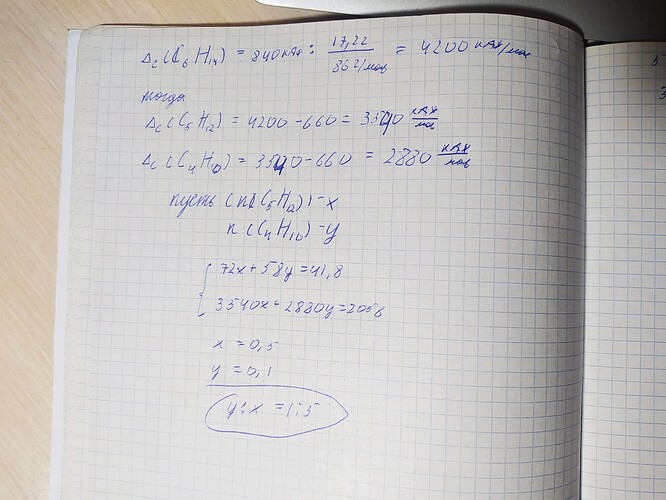 Δc(C₆H₁₄) = 840 кДж : 17,22 / 86 г/моль = 4200 кДж/моль
тогда
Δc(C₅H₁₂) = 4200 - 660 = 3540 кДж/моль
Δc(C₄H₁₀) = 3540 - 660 = 2880 кДж/моль
пусть n(C₅H₁₂) - x
n(C₄H₁₀) - y
{ 72x + 58y = 41,8
3540x + 2880y = 2058
x = 0,5
y = 0,1
y : x = 1 : 5